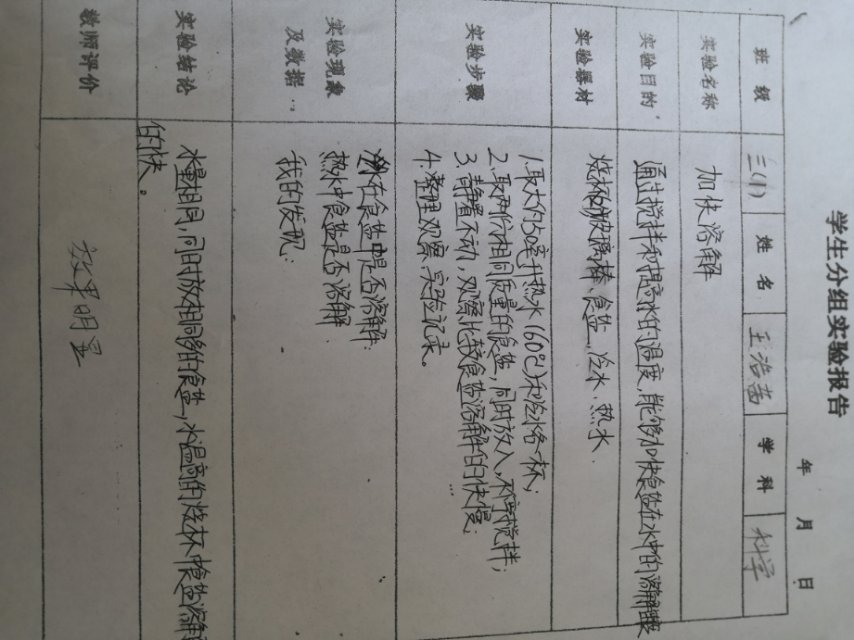 学生分组实验报告
年 月 日
班级 三(1) 姓名 王浩茜 学科 科学
实验名称 加快溶解
实验目的 通过搅拌和提高水的温度,能够加快食盐在水中的溶解速度
实验器材 烧杯、玻璃棒、食盐、冷水、热水
实验步骤 1.取大约50毫升热水(60℃)和冷水各一杯;
2.取两份相同质量的食盐,同时放入,不停搅拌;
3.静置不动,观察比较食盐溶解的快慢;
4.整理观察,实验记录。
实验现象及数据 冷水在食盐中是否溶解:
热水中食盐是否溶解:
我的发现:
实验结论 水量相同,同时放相同多的食盐,水温高的烧杯中食盐溶解
的快。
教师评价 效果明显